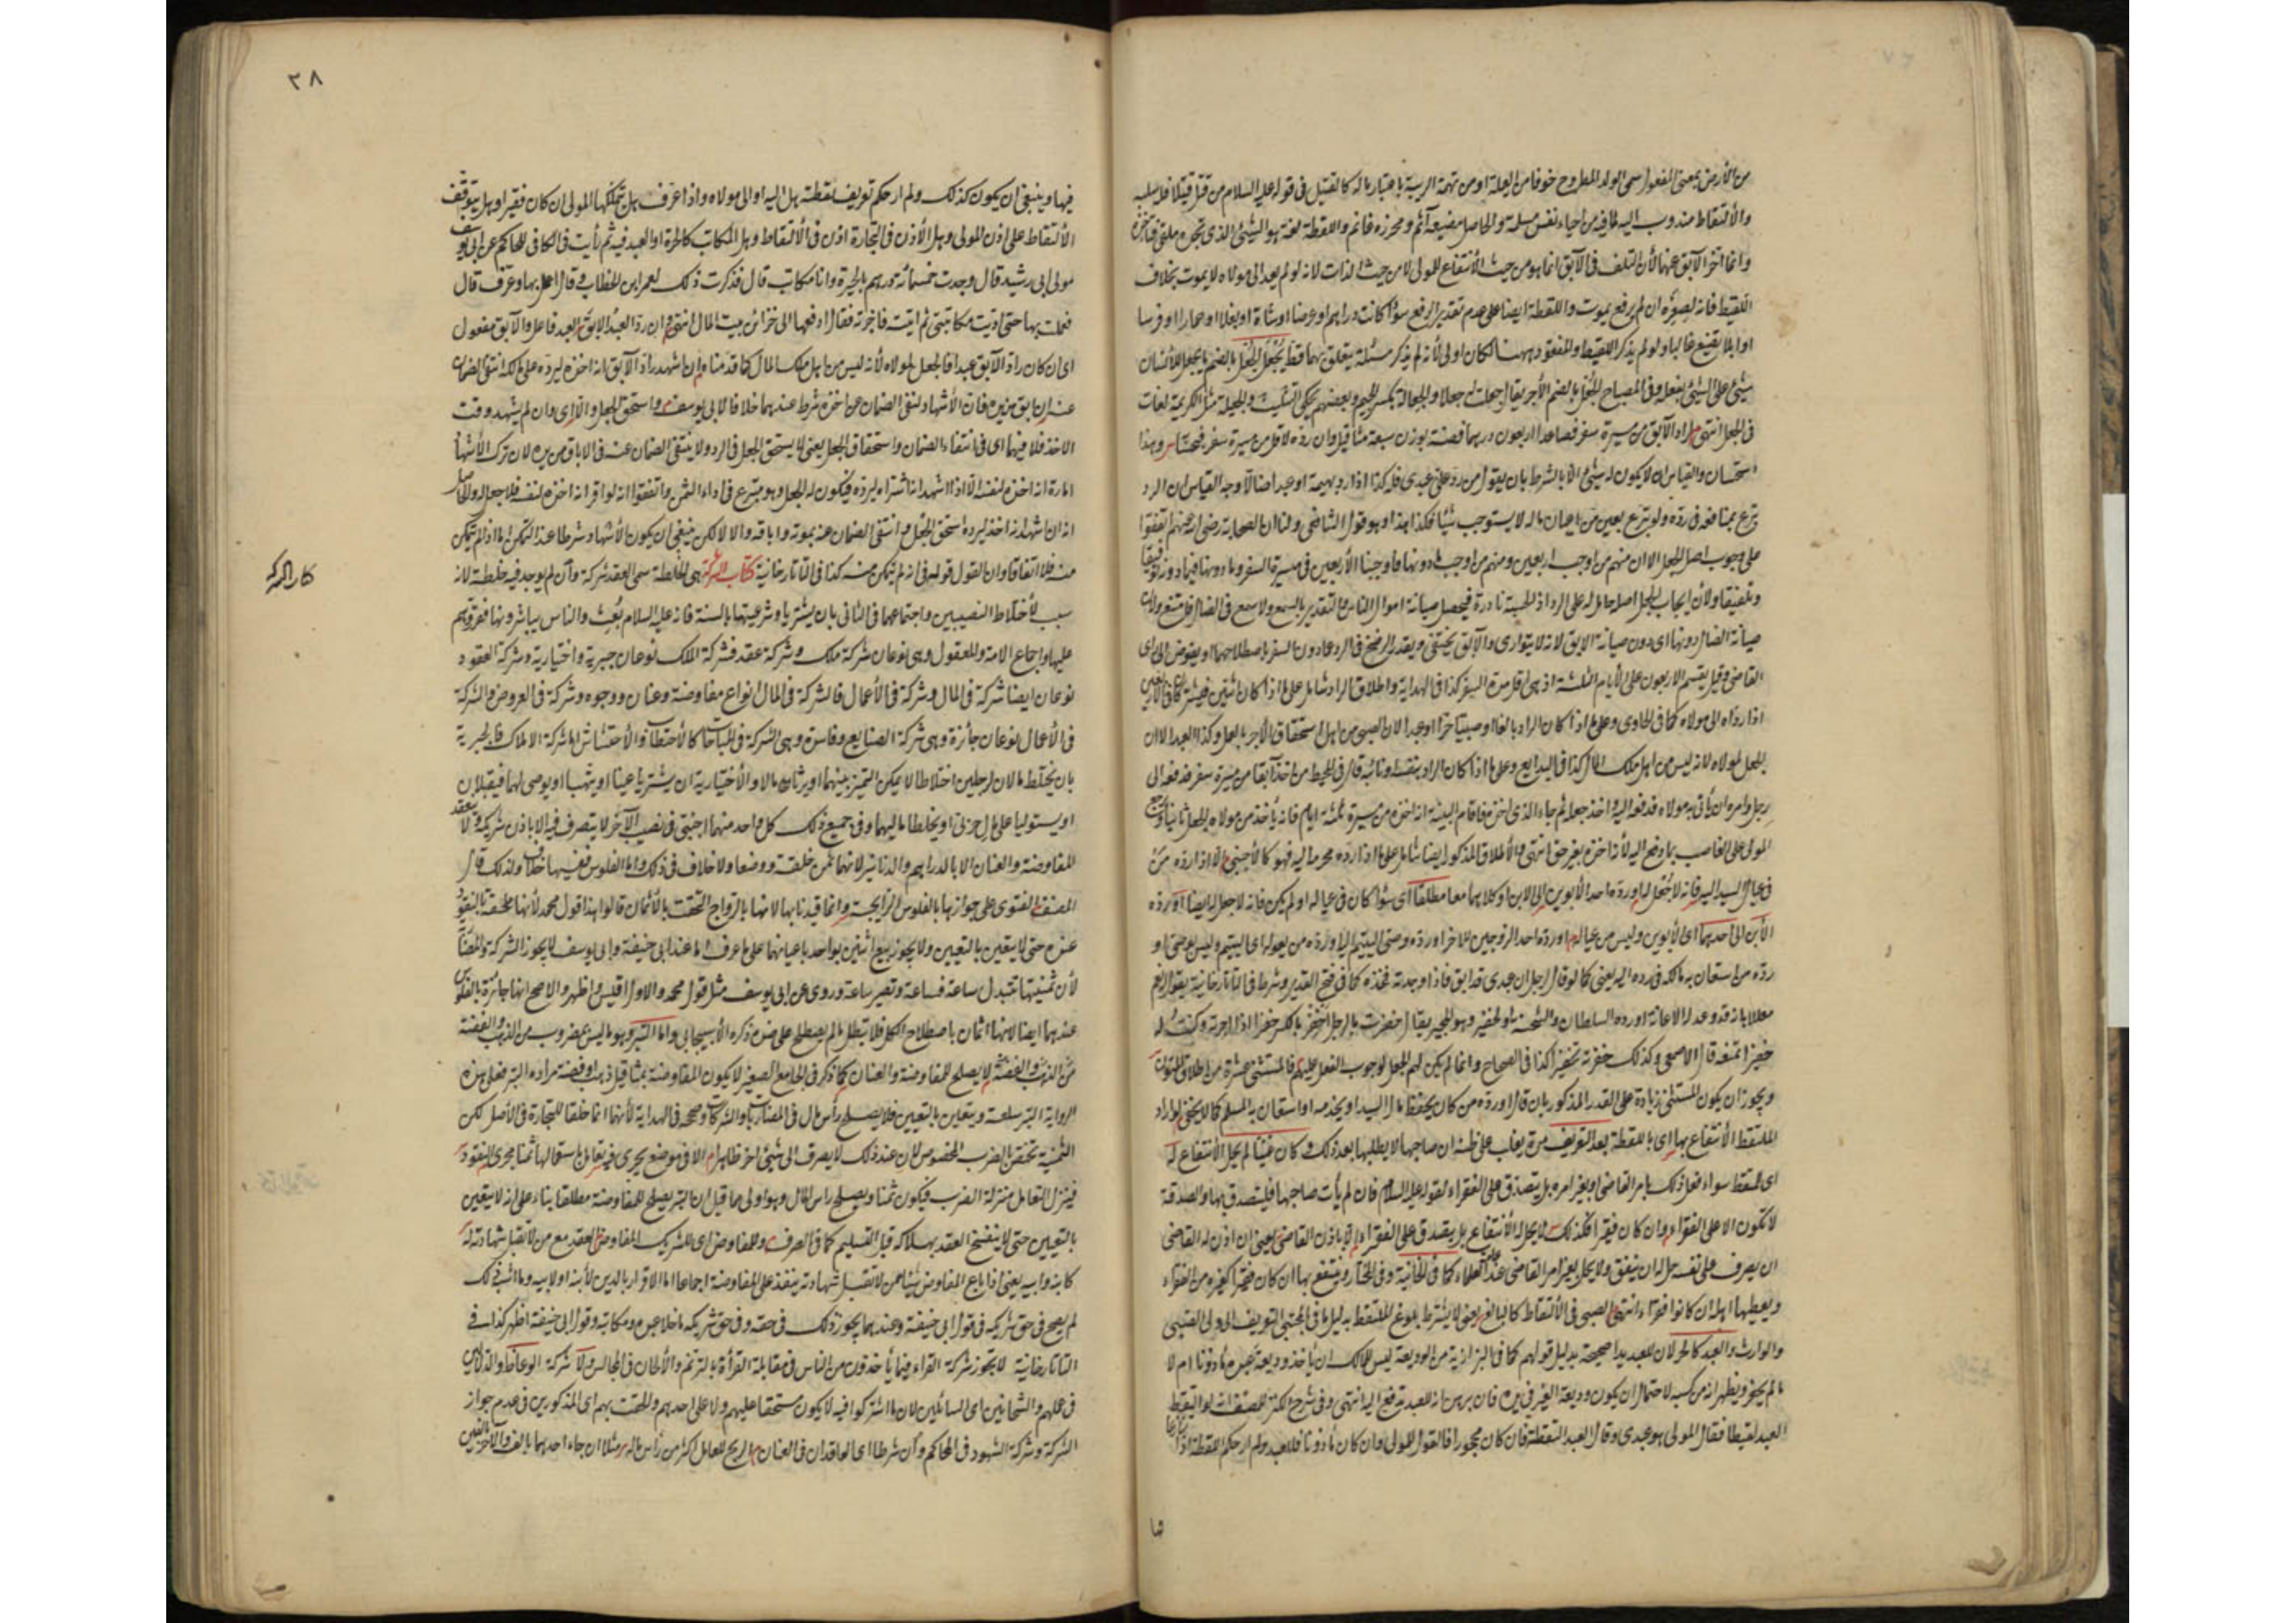 من الأرض بمعنى المفعول سمى الولد المطروح خوفا من العيلة او من تهمة الريبة باعتبار ماله كالقتيل فى قوله عليه السلام من قتل قتيلا فله سلبه
والألتقاط مندوب اليه لما فيه من احياء نفس مسلمة والحاصل مضيعه آثم ومحرزه غانم واللقطة لغة هو الشيئ الذى تجده ملقى فتأخذه
وانما اخر الآبق عنهما لأن التلف فى الآبق انما هو من حيث الأنتفاع للمولى لا من حيث الذات لانه لو لم يعد الى مولاه لا يموت بخلاف
اللقيط فانه لصغره ان لم يرفع يموت واللقطة ايضا على عدم تقدير الرفع سواء كانت دراهم او عرضا او شاة او بغلا او حمارا او فرسا
او ابلا ولو لم يذكر اللقيط والمفقود ههنا لكان اولى لأنه لم يذكر مسئلة يتعلق بهما قط الجعل بالضم ما يجعل للأنسان
شيئ على الشيئ يفعله وفى المصباح الجعل بالضم الأجر يقال جعلت له جعلا والجعالة بكسر الجيم وبعضهم يحكى التثليث والجعيلة مثل الكريمة لغات
فى الجعل انتهى لراد الآبق من مسيرة سفر فصاعدا اربعون درهما فضة بوزن سبعة مثاقيل وان رده لاقل من مسيرة سفر فبحسابه وهذا
استحسان والقياس ان لا يكون له شيئ الا بالشرط بان يقول من رد على عبدى فله كذا اذا رد بهيمة او عبدا ضالا وجه القياس ان الرد
تبرع بمنافعه فى رده ولو تبرع بعين من اعيان ماله لا يستوجب شيئا فكذا هذا وهو قول الشافعى ولنا ان الصحابة رضى الله عنهم اتفقوا
على وجوب اصل الجعل الا ان منهم من اوجب اربعين ومنهم من اوجب ما دونها فاوجبنا الأربعين فى مسيرة السفر وما دونها فيما دونه توفيقا
وتلفيقا ولأن ايجاب الجعل اصله حامل له على الرد اذ الحسبة نادرة فيحصل صيانة اموال الناس والتقدير بالسمع ولا سمع فى الضال فامتنع ولان
صيانة الضال دونها اى دون صيانة الابق لانه لا يتوارى والآبق يختفى ويقدر الرضخ فى الرد عما دون السفر باصطلاحهما او يفوض الى رأى
القاضى وقيل يقسم الاربعون على الأيام الثلثة اذ هى اقل مدة السفر كذا فى الهداية واطلاق الراد شامل على ما اذا كان اثنين فيشتركان فى الأربعين
اذا رداه الى مولاه كما فى الحاوى وعلى ما اذا كان الراد بالغا او صبيا حرا او عبدا لان الصبى من اهل استحقاق الأجر بالعمل وكذا العبد الا ان
الجعل لمولاه لانه ليس من اهل ملك المال كذا فى البدايع وعلى ما اذا كان الراد بنفسه او نائبه قال فى المحيط من اخذ آبقا من مسيرة سفر فدفعه الى
رجل وامره ان يأتى به مولاه فدفعه اليه واخذ جعله ثم جاء الذى اخذه فاقام البينة انه اخذه من مسيرة ثلثة ايام فانه يأخذ من مولاه الجعل ثانيا ورجع
المولى على الغاصب بما دفع اليه لأنه اخذه بغير حق انتهى والأطلاق المذكور ايضا شامل على ما اذا رده محرما اليه فهو كالأجنبى الا اذا رده من
فى عيال السيد اليه فانه لا جعل له او رده احد الأبوين الى الابن او كلاهما معا مطلقا اى سواء كان فى عياله او لم يكن فانه لا جعل له ايضا او رده
الأبن الى احدهما اى الأبوين وليس من عياله او رده احد الزوجين للاخر او رده وصى اليتيم اليه او رده من يعوله اى اليتيم وليس بوصى او
رده من استعان به مالكه فى رده اليه يعنى كما لو قال لرجل ان عبدى قد ابق فاذا وجدته فخذه كما فى فتح القدير وشرط فى التاتارخانية بقوله نعم
معللا بانه قد وعد له الاعانة او رده السلطان والشحنة او الخفير وهو المجير يقال خفرت بالرجل اخفر بالكسر خفرا اذا اجرته وكنت له
خفيرا تمنعه قال الاصمعى وكذلك خفرته تخفيرا كذا فى الصحاح وانما لم يكن لهم الجعل لوجوب الفعل عليهم فالمستثنى عشرة من اطلاق المتون
ويجوز ان يكون المستثنى زيادة على القدر المذكور بان قال او رده من كان يحفظ مال السيد او يخدمه او استعان به المسلم كما لا يخفى ولو اراد
الملتقط الأنتفاع بها اى باللقطة بعد التعريف مرة يغلب على ظنه ان صاحبها لا يطلبها بعد ذلك وكان غنيا لم يحل الأنتفاع له
اى للملتقط سواء فعل ذلك بامر القاضى او بغير امره بل يتصدق على الفقراء لقوله عليه السلام فان لم يأت صاحبها فليتصدق بها والصدقة
لا تكون الا على الفقراء وان كان فقيرا فكذلك لا يحل له الأنتفاع بل يتصدق على الفقراء الا باذن القاضى يعنى ان اذن له القاضى
ان يصرف على نفسه حل له ان ينفق ولا يحل بغير امر القاضى عند عامة العلماء كما فى الخانية وفى المختار وينتفع بها ان كان فقيرا كغيره من الفقراء
ويعطيها اهله ان كانوا فقراء انتهى والصبى فى الألتقاط كالبالغ يعنى لا يشترط بلوغ الملتقط بدليل ما فى المجتبى التعريف الى ولى الصبى
والوارث والعبد كالحر لان للعبد يدا صحيحة بدليل قولهم كما فى البزازية من الوديعة ليس للمالك ان يأخذ وديعة عبده مأذونا ام لا
ما لم يحضر ويظهر انه من كسبه لاحتمال ان يكون وديعة الغير فى يده فان برهن انه للعبد يدفع اليه انتهى وفى شرح الكنز للمصنف ان لو التقط
العبد لقيطا فقال المولى هو عبدى وقال العبد التقطته فان كان محجورا فالقول للمولى وان كان مأذونا فللعبد ولم ار حكم اللقطة اذا تنازعا
٣٨
فيها وينبغى ان يكون كذلك ولم ار حكم تعريف لقطته هل اليه او الى مولاه واذا عرف هل يتملكها المولى ان كان فقيرا وهل يتوقف
الألتقاط على اذن المولى وهل الأذن فى التجارة اذن فى الألتقاط وهل المكاتب كالحر او العبد فيه ثم رأيت فى الكافى للحاكم عن ابى يوسف
مولى ابى رشيد قال وجدت خمسمائة درهم بالحيرة وانا مكاتب قال فذكرت ذلك لعمر ابن الخطاب فقال اعمل بها وعرف قال
فعملت بها حتى اديت مكاتبتى ثم اتيته فاخبرته فقال ادفعها الى خزائن بيت المال انتهى وان رد العبد الابق العبد فاعل والآبق مفعول
اى ان كان راد الآبق عبدا فالجعل لمولاه لأنه ليس من اهل ملك المال كما قدمنا وان اشهد راد الآبق انه اخذه ليرده على مالكه انتفى الضمان
عنه ان ابق من يده فان الأشهاد لنفى الضمان عن اخذه شرط عندهما خلافا لابى يوسف واستحق الجعل والا اى وان لم يشهد وقت
الاخذ فلا فيهما اى فى انتفاء الضمان واستحقاق الجعل يعنى لا يستحق الجعل فى الرد ولا ينتفى الضمان عنه فى الاباق من يده لان ترك الأشهاد
امارة انه اخذه لنفسه الا اذا اشهد انه اشتراه ليرده فيكون له الجعل وهو متبرع فى اداء الثمن واتفقوا انه لو اقر انه اخذه لنفسه فلا جعل له والحاصل
انه ان اشهد انه اخذ ليرده استحق الجعل وانتفى الضمان عنه بموته واباقه والا لا لكن ينبغى ان يكون الأشهاد شرطا عند التمكن اما اذا لم يتمكن
منه فلا اتفاقا وان القول قوله فى انه لم يتمكن منه كذا فى التاتارخانية كتاب الشركة هى الخلطة سمى العقد شركة وان لم يوجد فيه خلطة لانه
كتاب الشركة
سبب لأختلاط النصيبين واجتماعهما فى الثانى بان يشتريا وشرعيتها بالسنة فانه عليه السلام بعث والناس يباشرونها فقررهم
عليها واجماع الامة والمعقول وهى نوعان شركة ملك وشركة عقد فشركة الملك نوعان جبرية واختيارية وشركة العقود
نوعان ايضا شركة فى المال وشركة فى الأعمال فالشركة فى المال انواع مفاوضة وعنان ووجوه وشركة فى العروض والشركة
فى الأعمال نوعان جائزة وهى شركة الصنايع وفاسدة وهى الشركة فى المباحات كالأحتطاب والأحتشاش اما شركة الاملاك فالجبرية
بان يختلط مالان لرجلين اختلاطا لا يمكن التميز بينهما او يرثان مالا والأختيارية ان يشتريا عينا او يتهبا او يوصى لهما فيقبلان
او يستوليا على مال حربى او يخلطا ماليهما وفى جميع ذلك كل واحد منهما اجنبى فى نصيب الآخر لا يتصرف فيه الا باذن شريكه ولا يعقد
المفاوضة والعنان الا بالدراهم والدنانير لانهما ثمن خلقة ووضعا ولا خلاف فى ذلك واما الفلوس ففيها خلاف ولذلك قال
المصنف الفتوى على جوازها بالفلوس الرايجة وانما قيدنا بها لانها بالرواج التحقت بالأثمان قالوا هذا قول محمد لأنها ملحقة بالنقود
عنده حتى لا يتعين بالتعيين ولا يجوز بيع اثنين بواحد باعيانهما على ما عرف اما عند ابى حنيفة وابى يوسف لا يجوز الشركة والمضاربة
لأن ثمنيتها تتبدل ساعة فساعة وتصير سلعة وروى عن ابى يوسف مثل قول محمد والاول اقيس واظهر والاصح انها جائزة بالفلوس
عندهما ايضا لانها اثمان باصطلاح الكل فلا تبطل ما لم يصطلح على ضده ذكره الأسبيجابى واما التبر وهو ما ليس بمضروب من الذهب والفضة
من الذهب والفضة لا يصلح للمفاوضة والعنان كما ذكر فى الجامع الصغير لا يكون المفاوضة بمثاقيل ذهب او فضة مراده التبر فعلى هذه
الرواية التبر سلعة ويتعين بالتعيين فلا يصلح رأس مال فى المضاربات والشركات وصححه فى الهداية لأنهما انما خلقا للتجارة فى الأصل لكن
الثمنية تختص بالضرب المخصوص لان عند ذلك لا يصرف الى شيئ اخر ظاهرا الا فى موضع يجرى فيه تعامل باستعمالها ثمنا مجرى النقود
فينزل التعامل منزلة الضرب فيكون ثمنا ويصلح راس المال وهو اولى مما قيل ان التبر يصلح للمفاوضة مطلقا بناء على انه لا يتعين
بالتعيين حتى لا ينفسخ العقد بهلاكه قبل التسليم كما فى الصرف وللمفاوض اى للشريك المفاوض العقد مع من لا تقبل شهادته له
كابنه وابيه يعنى اذا باع المفاوض شيئا ممن لا تقبل شهادته ينفذ على المفاوضة اجماعا اما الاقرار بالدين لأبنه او لابيه وما اشبه ذلك
لم يصح فى حق شريكه فى قول ابى حنيفة وعندهما يجوز ذلك فى حقه وفى حق شريكه ما خلا عبده ومكاتبه وقول ابى حنيفة اظهر كذا فى
التاتارخانية لا يجوز شركة القراء فيما يأخذون من الناس فى مقابلة القرأة بالترنم والألحان فى المجالس ولا شركة الوعاظ والدلالين
فى عملهم والشحاذين اى السائلين لان ما اشتركوا فيه لا يكون مستحقا عليهم ولا على احدهم والحقت بهم اى المذكورين فى عدم جواز
الشركة وشركة الشهود فى المحاكم وان شرطا اى العاقدان فى العنان الربح للعامل اكثر من رأس ماله مثلا ان جاء احدهما بالف والآخر بالفين